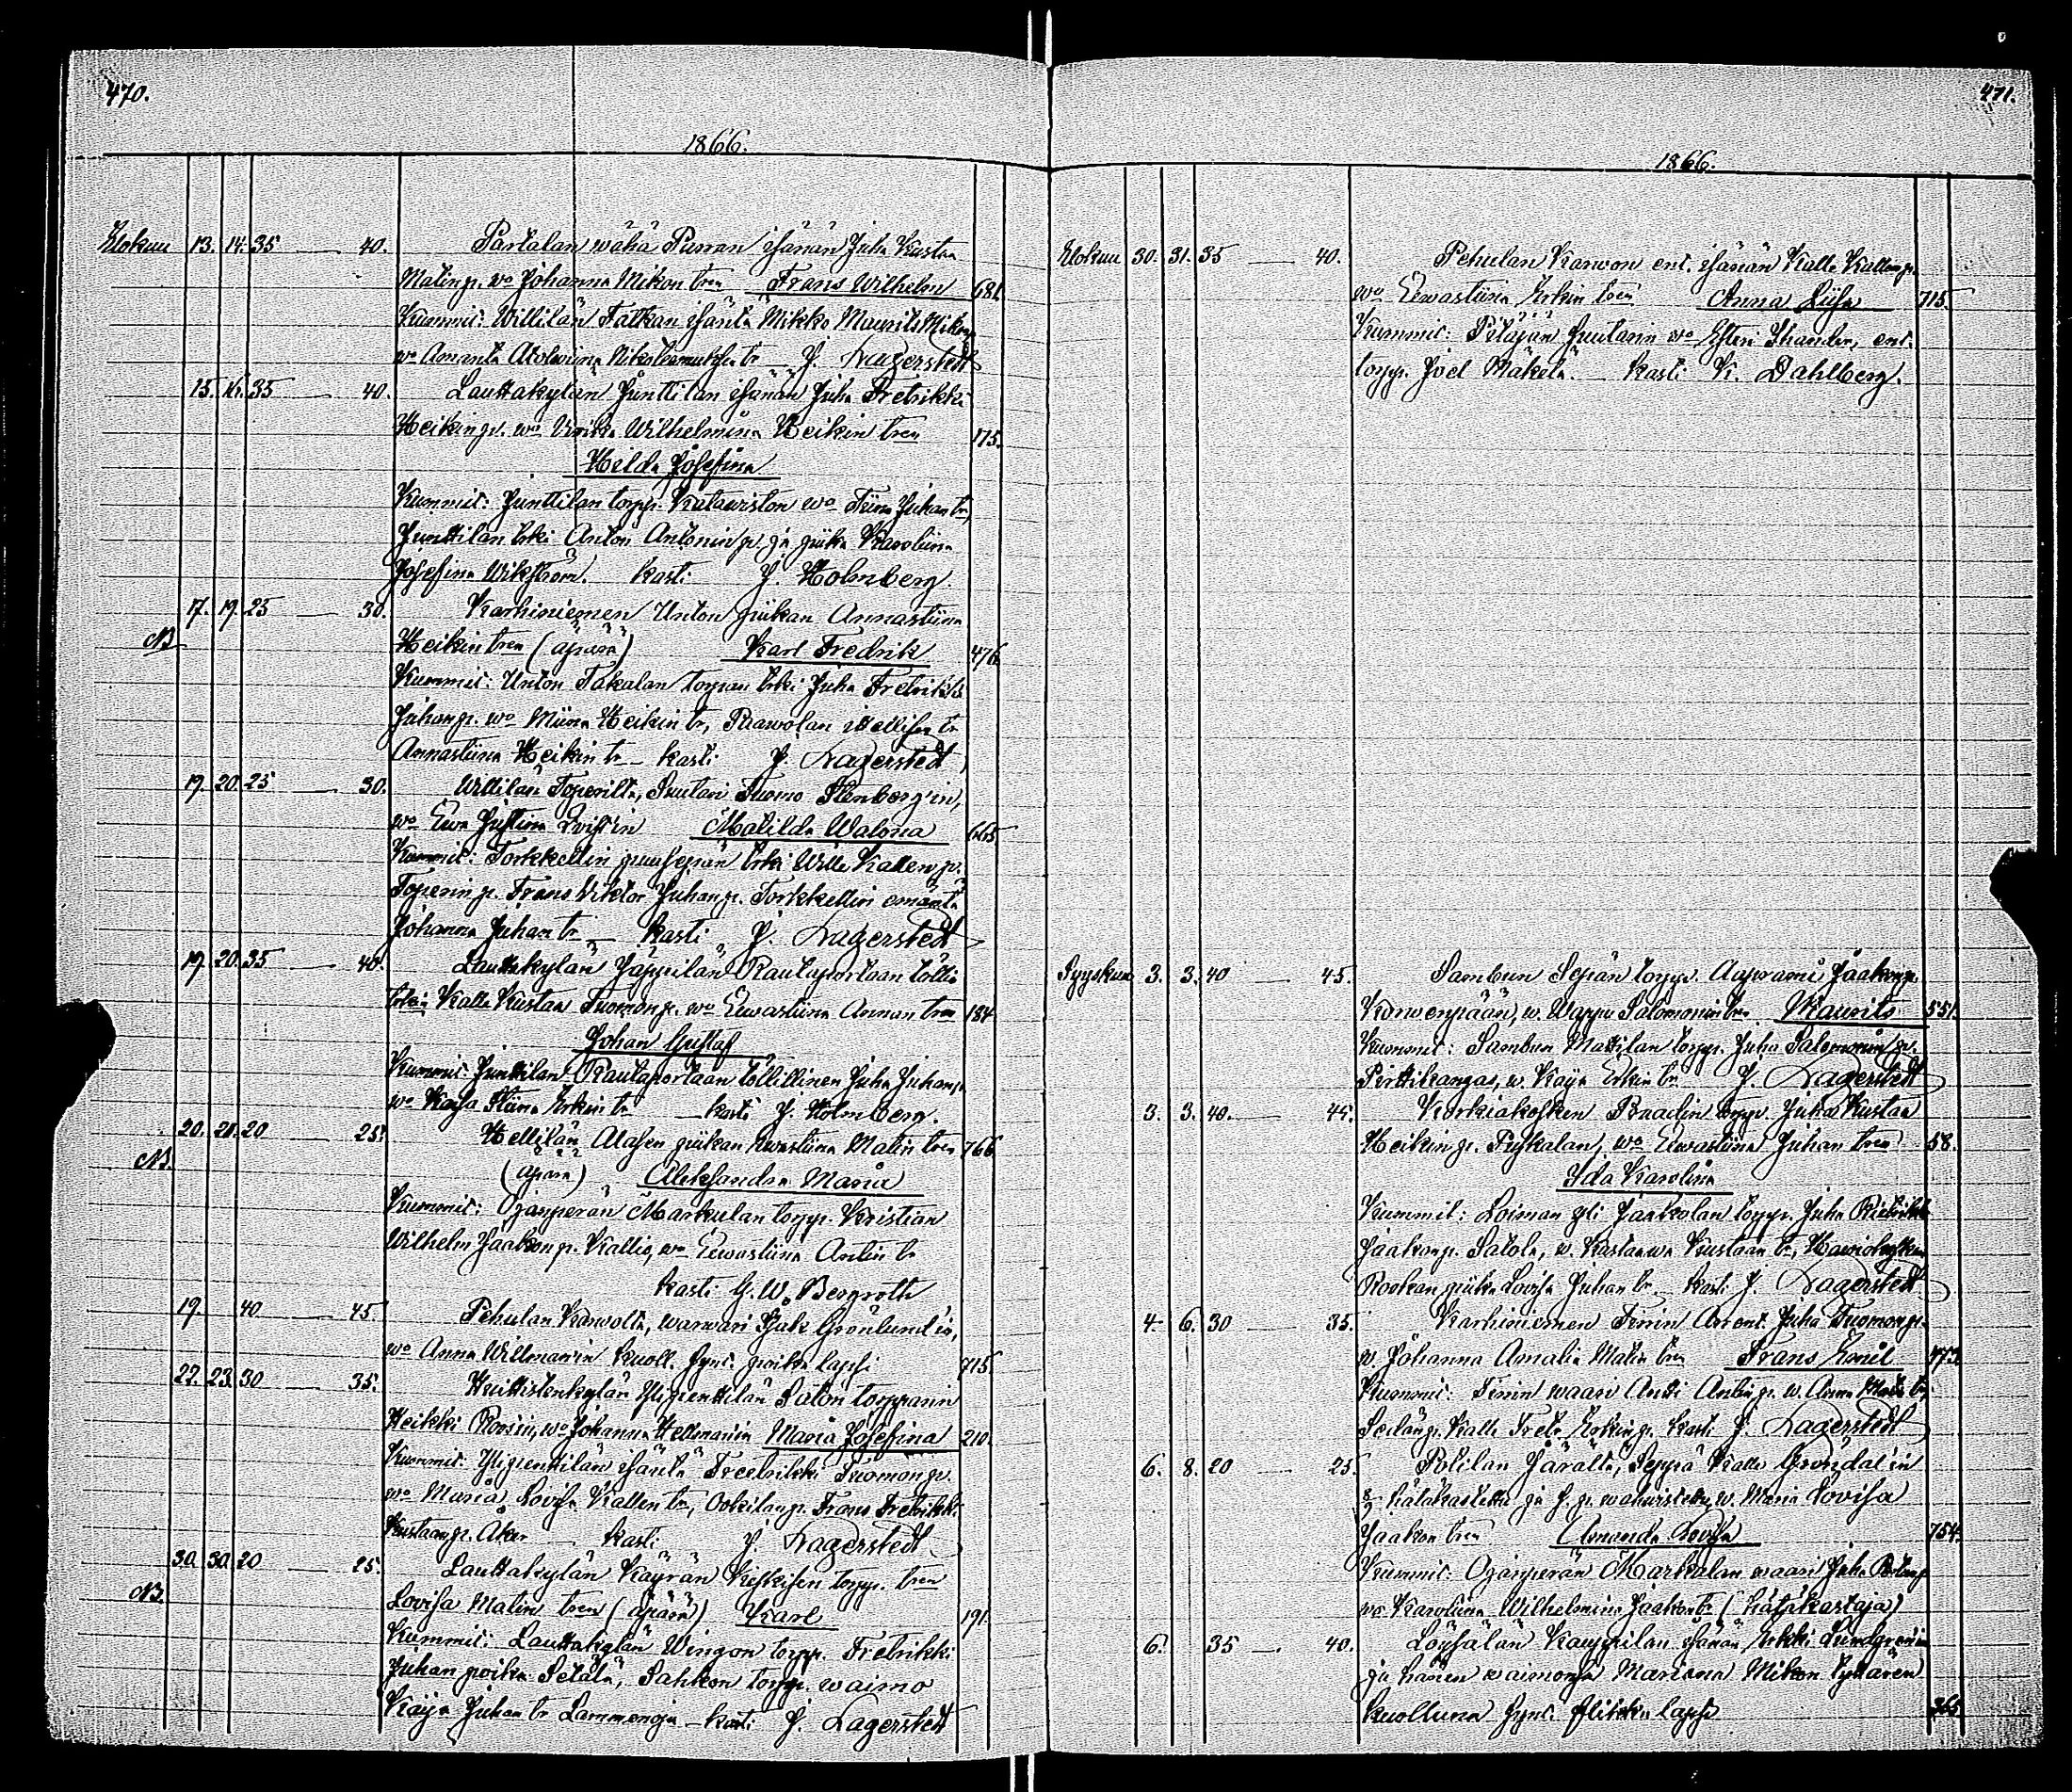 470.
1866.
Elokuu 13. 14. 35 — 40. Partalan wähä Parran isänän Juha Kustaa
Matinp. wo Johanna Mikon tren Frans Wilhelm 681.
Kummit: Willilän Talkan isäntä Mikko Maurits Mikonp.
wo Amanta J. Lagerstedt
15. 16. 35 — 40. Lauttakylän Junttilan isänän Juha Fretrikki
Heikinp. wo Ulrika Wilhelmina Heikin tren 175.
Helda Josefina
Kummit: Junttilan torpp. Katawiston wo Tiina Juhan tr,
Junttilan trki Anton Antonin p. ja piika Karoliina
Josefina Wikström. kasti J. Holmberg.
17. 19. 25 — 30. Karhiniemen Unton piikan Annastiina
NB. Heikin tren (äpärä) Karl Fredrik 476.
Kummit: Unton Takalan torpan trki Juha Fretrikki
Juhanp. wo Miina Heikin tr, Paawolan itellisen tr
Annastiina Heikin tr — kasti J. Lagerstedt
19. 20. 25 — 30. Willilän Toperilta, Suutari Tuomo Stenberg'in,
wo Ewa Justina Qvist'in Matilda Walona 665
Kummit: Torkkellin puusepän trki Wille Kallenp.
Toperin p. Frans Viktor Juhanp. Torkkellin emäntä
Johanna Juhan tr — kasti J. Lagerstedt
19. 20. 35 — 40. Lauttakylän Jäppilän Rautaportaan töllin
trkin Kalle Kustaa Tuomonp. wo Eewastiina Annan tren 184.
Johan Gustaf
Kummit: Junttilan Rautaportaan töllillinen Juha Juhanp.
wo Kaisa Stiina Erkin tr — kasti J. Holmberg.
20. 21. 20 — 25. Hellilän Alasen piikan Ewastiina Matin tren 766
NB. (äpärä) Aleksandra Maria
Kummit: Ojanperän Markulan torpp. Kristian
Wilhelm Jaakonp. Kallio, wo Eewastiina Antin tr
kasti G. W. Bergroth
19. 40 — 45. Pehulan Karwolta, warwari Isak Grönlund'in,
wo Anna Willman'in kuoll. synt. poika lapsi 715
22. 23. 30 — 35. Huittistenkylän Ylipenttilän Salon torppanin
Heikki Roosin, wo Johanna Hellman'in Maria Josefina 210.
Kummit: Ylipenttilän isäntä Freetrikki Tuomonp.
wo Maria Lovisa Kallen tr, Ookilanp. Frans Fretrikki
Kustaanp. Aker kasti J. Lagerstedt
30. 30. 20 — 25. Lauttakylän Käyrän Kiskisen torpp. tren
NB. Lovisa Matin tren (äpärä) Karl 191.
Kummit: Lauttakylän Wingon torpp. Fretrikki
Juhan poika Setälä, Sahkon torpp. waimo
Kaija Juhan tr Lammenoja — kasti J. Lagerstedt
471.
1866.
Elokuu 30. 31. 35 — 40. Pehulan Karwon ent. isänän Kalle Kallenp.
wo Eewastiina Erkin tren Anna Liisa 715.
Kummit: Pitäjän Suutarin wo Esteri Thander, ent.
torpp. Joel Mäkelä. kasti K. Dahlberg.
Syyskuu 3. 3. 40 — 45. Sambun Sepän torpp. Aaprami Jaakonp.
Korwenpään, w. Wappu Salomonin tren Maurits 551.
Kummit: Sambun Mattilan torpp. Juha Salomonin p.
Pirttikangas, w. Kaija Erkin tr J. Lagerstedt
3. 3. 40. — 45. Korkiakosken Praadin torpp. Juha Kustaa
Heikinp. Pyskalan, wo Eewastiina Juhan tren 58.
Ida Karolina
Kummit: Loiman yli Jaakolan torpp. Juha
Jaakonp. Satola, w. Kastaawa Kustaan tr,
Rookan piika Lovisa Juhan tr. kasti J. Lagerstedt
4. 6. 30 — 35. Karhiniemen Finin Arrent. Juha Tuomonp.
w. Johanna Amalia Matin tren Frans Emil 473.
Kummit: Finin waari Antti Antinp. w. Anna Matin tr
kasti J. Lagerstedt
6. 8. 20 — 25. Polilan Järältä, Seppä Kalle Gröndal'in
8/9 hätäkastettu ja s. p. wahwistettu, w. Maria Lovisa
Jaakon tren Amanda Lovisa 754.
Kummit: Ojanperän Markulan waari Juha
wo Karoliina Wilhelmina Jaakon tr (hätäkastaja)
6. 35 — 40. Löysälän Kauppilan isänän Erkki Lundgren'in
ja hänen waimonsa Mariana Mikon tyttären
kuolluna synt. flikka lapsi 365